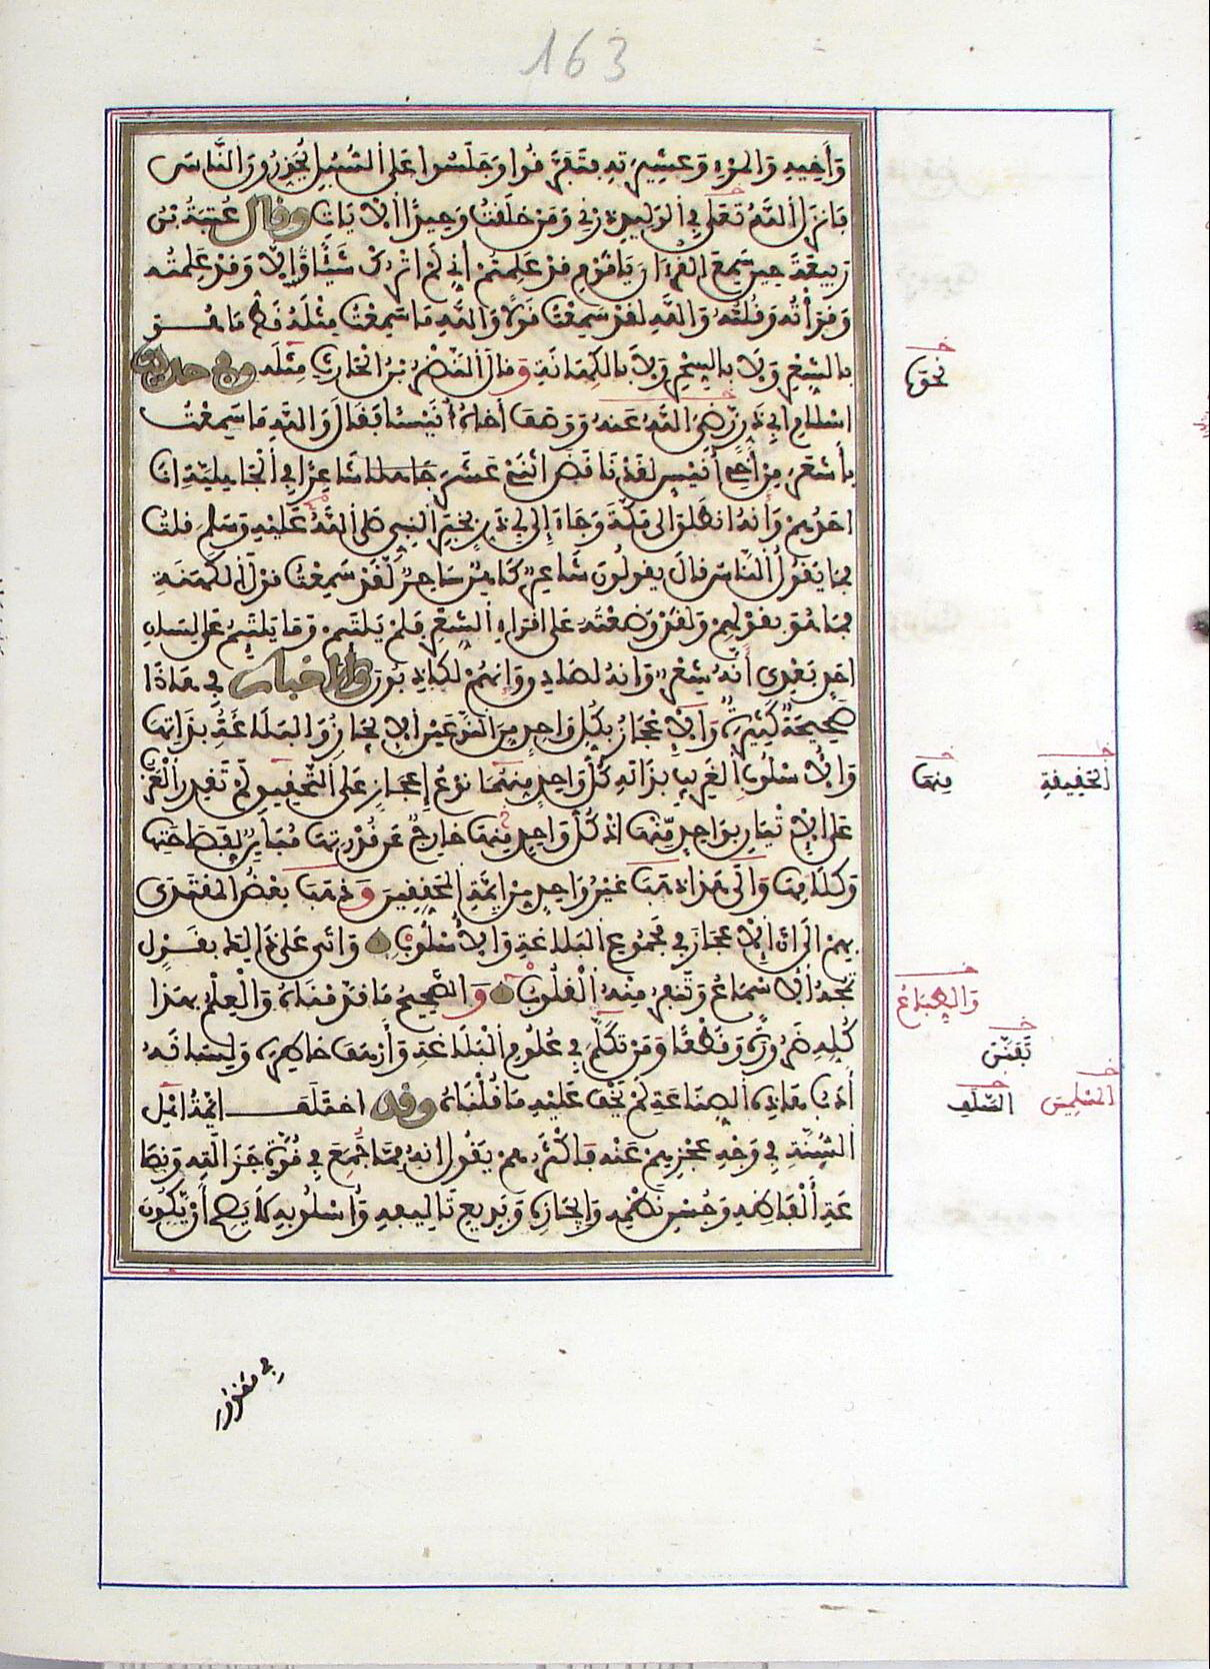 163
وَأَخِيهِ وَالمَرْءِ وَعَشِيرَتِهِ فَتَفَرَّقُوا وَجَلَسُوا عَلَى السُّبُلِ يُحَذِّرُونَ النَّاسَ
فَأَنزَلَ اللَّهُ تَعَلَى فِي الوَلِيدِ ذَرْنِي وَمَنْ خَلَقْتُ وَحِيدًا الْآيَاتِ وَقَالَ عُتْبَةُ بْنُ
رَبِيعَةَ حِينَ سَمِعَ القُرْءَانَ يَاقَوْمِ قَدْ عَلِمْتُمْ أَنِّي لَمْ أَتْرُكْ شَيْئًا إِلَّا وَقَدْ عَلِمْتُه
وَقَرَأْتُهُ وَقُلْتُهُ وَاللَّهِ لَقَدْ سَمِعْتُ قَوْلًا وَاللَّهِ مَا سَمِعْتُ مِثْلَهُ قَطُّ مَا هُوَ
بِالشِّعْرِ وَلَا بِالسِّحْرِ وَلَا بِالكَهَانَةِ وَقَالَ النَّضْرُ بْنُ الْحَارِثِ مِثْلَه وَفِي حَدِيثِ
نحوَه
اسْلَامِ ابِي ذَرٍّ رَضِيَ اللَّهُ عَنهُ وَوَصَفَ أَخَاهُ أُنَيْسًا فَقَالَ وَاللَّهِ مَا سَمِعْتُ
بِأَشْعَرَ مِنْ أَخِي أُنَيْسٍ لَقَدْ نَاقَضَ اثْنَيْ عَشَرَ شَاعِرًا فِي الْجَاهِلِيَّةِ انَا
احَدُهُمْ وَأَنهُ انطَلَقَ الَى مَكَّةَ وَجَاءَ إِلَى ابِي ذَرٍّ بِخَبَرِ النَّبِيِّ صَلَى اللَّهُ عَلَيْهِ وَسَلَّمَ قلتُ
فمَا يَقُولُ النَّاسُ قَالَ يقولُونَ شَاعِرٌ كَاهِنٌ سَاحِرٌ لَقَدْ سَمِعْتُ قَوْلَ الكَهَنَةِ
فمَا هُوَ بقَوْلِهِمْ وَلقَدْ وَضَعْتُهُ عَلَى اقْرَاءِ الشِّعْرِ فَلَمْ يَلْتَئِمْ وَمَا يَلْتَئِمُ عَلَى لِسَانِ
احَدٍ بَعْدِي أَنَّهُ شِعْرٌ وَانهُ لصَادِقٌ وَإِنهُمْ لكَاذِبُونَ وَالاخْبَارُ فِي هَاذَا
صَحِيحَةٌ كَثِيرَةٌ وَالْإِعْجَازُ بِكُلِّ وَاحِدٍ مِنَ النَّوْعَيْنِ الْإِيجَازُ وَالبَلَاغَةُ بِذَاتِهَا
وَالأُسْلُوبُ الغَرِيبُ بِذَاتِهِ كُلُّ وَاحِدٍ مِنهُمَا نَوْعُ إِعْجَازٍ عَلَى التَّحْقِيقِ لَمْ تَقْدِرِ الْعَرَبُ
مِنهَا
الحَقِيقَةِ
عَلَى الْإِتْيَانِ بِوَاحِدٍ مِّنهُمَا اذْ كُلُّ وَاحِدٍ مِّنهُمَا خَارِجٌ عَن قُدْرَتِهَا مُبَايِنٌ لِفَصَاحَتِهَا
وَكَلَامِهَا وَالَى هَذَا ذَهَبَ غَيْرُ وَاحِدٍ مِنْ أَئِمَّةِ المُحَقِّقِينَ وَذَهَبَ بَعْضُ المُقْتَدَى
بِهِمْ الَى انَّ الْإِعْجَازَ فِي مَجْمُوعِ البَلَاغَةِ وَالْأُسْلُوبِ وَاتَى عَلَى ذَالِكَ بِقَوْلٍ
تَمُجُّهُ الْأَسْمَاعُ وَتَنفِرُ مِنْهُ الْقُلُوبُ وَالصَّحِيحُ مَا قَدَّمْنَاهُ وَالْعِلْمُ بِهَذَا
وَالطِّبَاعُ
كُلِّهِ ضَرُورَةً وَقَطْعًا وَمَنْ تكَلَّمَ فِي عُلُومِ الْبَلَاغَةِ وَأَرْهَفَ خَاطِرَهُ وَلِسَانَهُ
تَفَنَّنَ
أَدَبُ هَاذِهِ الصِّنَاعَةِ لَمْ يَخْفَ عَلَيْهِ مَا قُلْنَاهُ وَقَدِ اختَلَفَ أَئِمَّةُ اهْلِ
السَّلَفِ
المُسْلِمِينَ
السُّنَّةِ فِي وَجْهِ عَجْزِهِمْ عَنْه فَاكْثَرُهُمْ يَقُولُ انهُ مِمَّا جُمِعَ فِي قُوَّةِ جَزَالَتِهِ وَنَصَا
عَةِ أَلْفَاظِهِ وَحُسْنِ نَظْمِهِ وَإِيجَازِهِ وَبَدِيعِ تَالِيفِهِ وَأُسْلُوبِهِ لَا يَصِحُّ أَن يَّكُونَ
فِي مَقْدُورِ